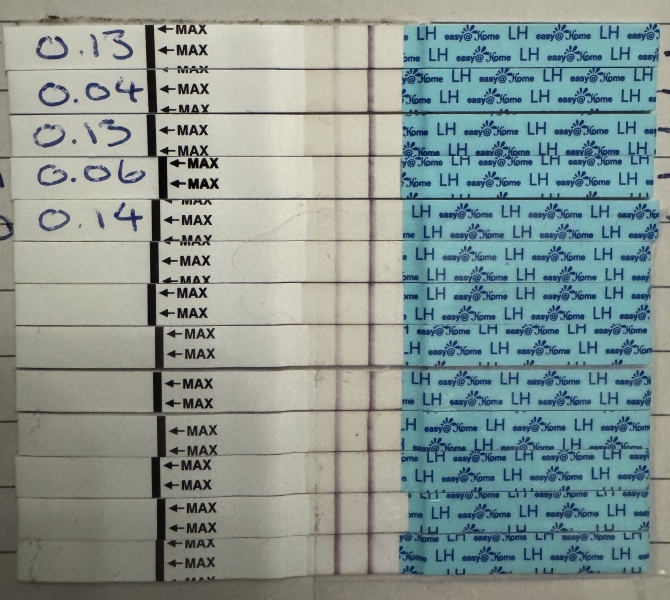 0.13 ←MAX ←MAX LH easy@Home LH easy@Home LH
0.04 ←MAX ←MAX ←MAX easy@Home LH easy@Home LH easy@Home LH
0.13 ←MAX ←MAX LH easy@Home LH easy@Home LH easy@Home
0.06 ←MAX ←MAX easy@Home LH easy@Home LH easy@Home LH
0.14 ←MAX ←MAX LH easy@Home LH easy@Home LH
←MAX ←MAX ←MAX easy@Home LH easy@Home LH easy@Home
←MAX ←MAX LH easy@Home LH easy@Home LH easy@Home
←MAX ←MAX easy@Home LH easy@Home LH easy@Home LH
←MAX ←MAX LH easy@Home LH easy@Home LH
←MAX ←MAX LH easy@Home LH easy@Home LH
←MAX ←MAX LH easy@Home LH easy@Home LH
←MAX ←MAX easy@Home LH easy@Home LH easy@Home
←MAX ←MAX easy@Home LH easy@Home LH easy@Home